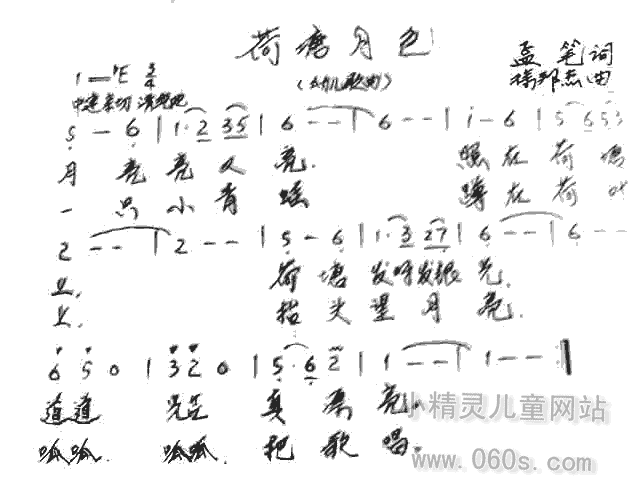 荷塘月色
孟笔词
(幼儿歌曲)
1—♭E 3/4
中速 亲切 清楚地
5 - 6 | 1·2 35 | 6 - - | 6 - - | i - 6 | 5 653
月 亮 亮 又 亮. 照 在 荷 塘
一 只 小 青 蛙 蹲 在 荷 叶
2 - - | 2 - - | 5 - 6 | 1·3 27 | 6 - - | 6 - -
上. 荷 塘 发 光.
上. 抬 头 望 月 亮.
6 5 0 | 3 2 0 | 5·6 2 | 1 - - | 1 - - :‖
道道 光 真 漂 亮.
呱呱. 呱呱. 把 歌 唱.
小精灵儿童网站
www.060s.com